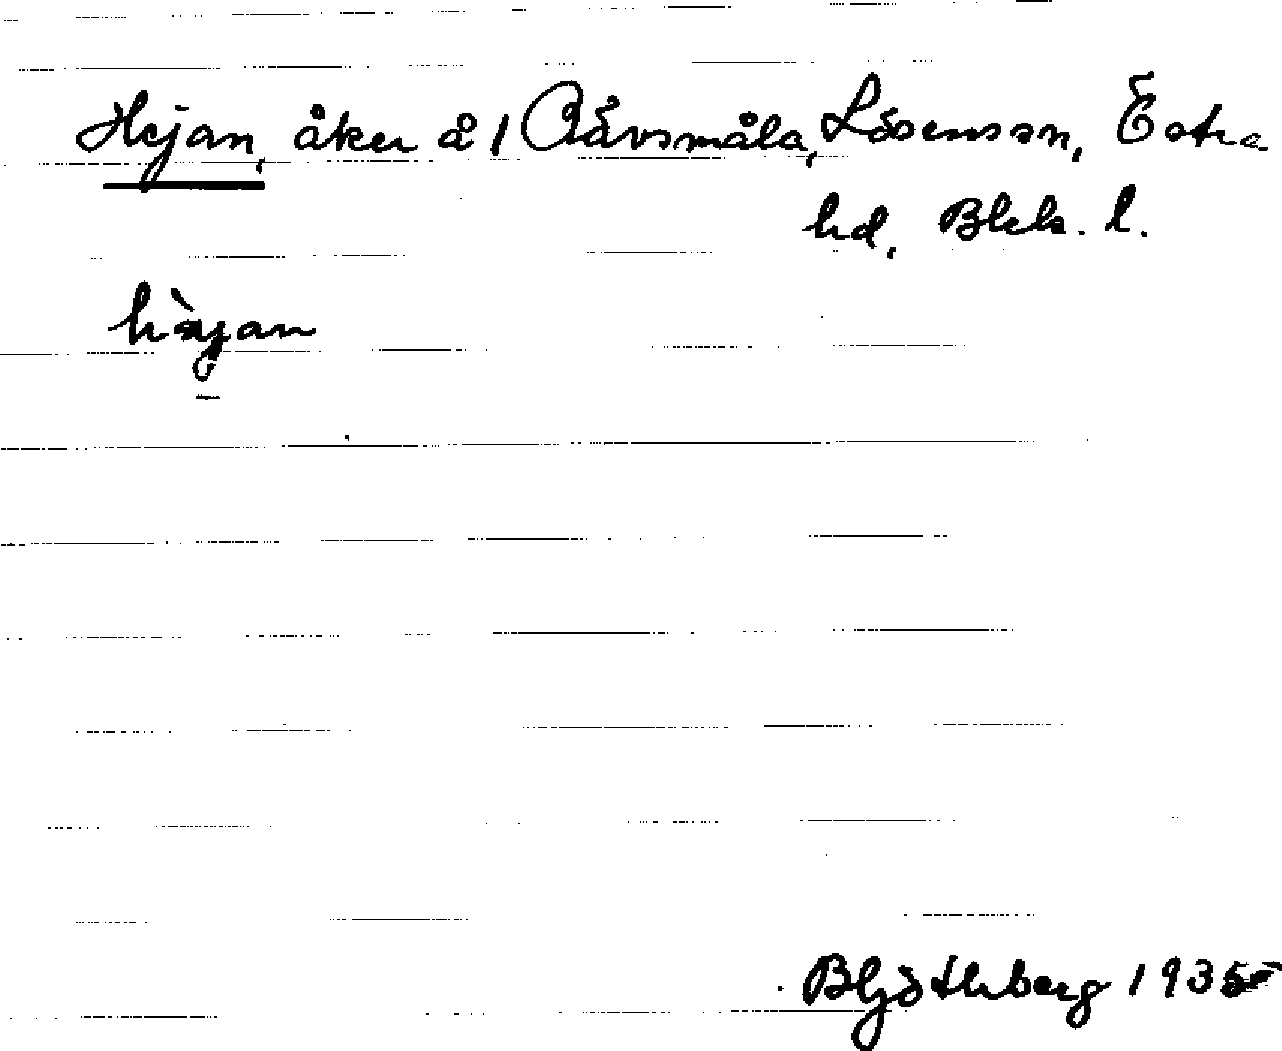 Hejan, åker å 1 Råvsmåla, Lösens sn, Östra
hd, Blek. l.
hàjan
BGöthberg 1935